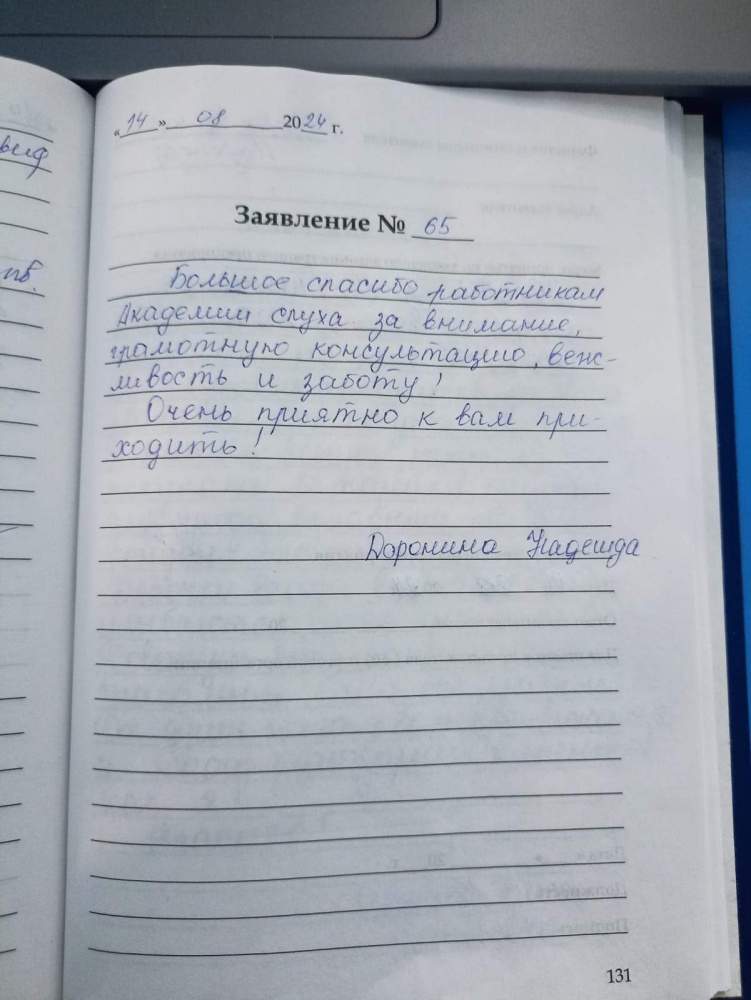 «14» 08 2024 г.
Заявление № 65
Большое спасибо работникам
Академии слуха за внимание,
грамотную консультацию, веж-
ливость и заботу!
Очень приятно к вам при-
ходить!
Доронина Надежда
131